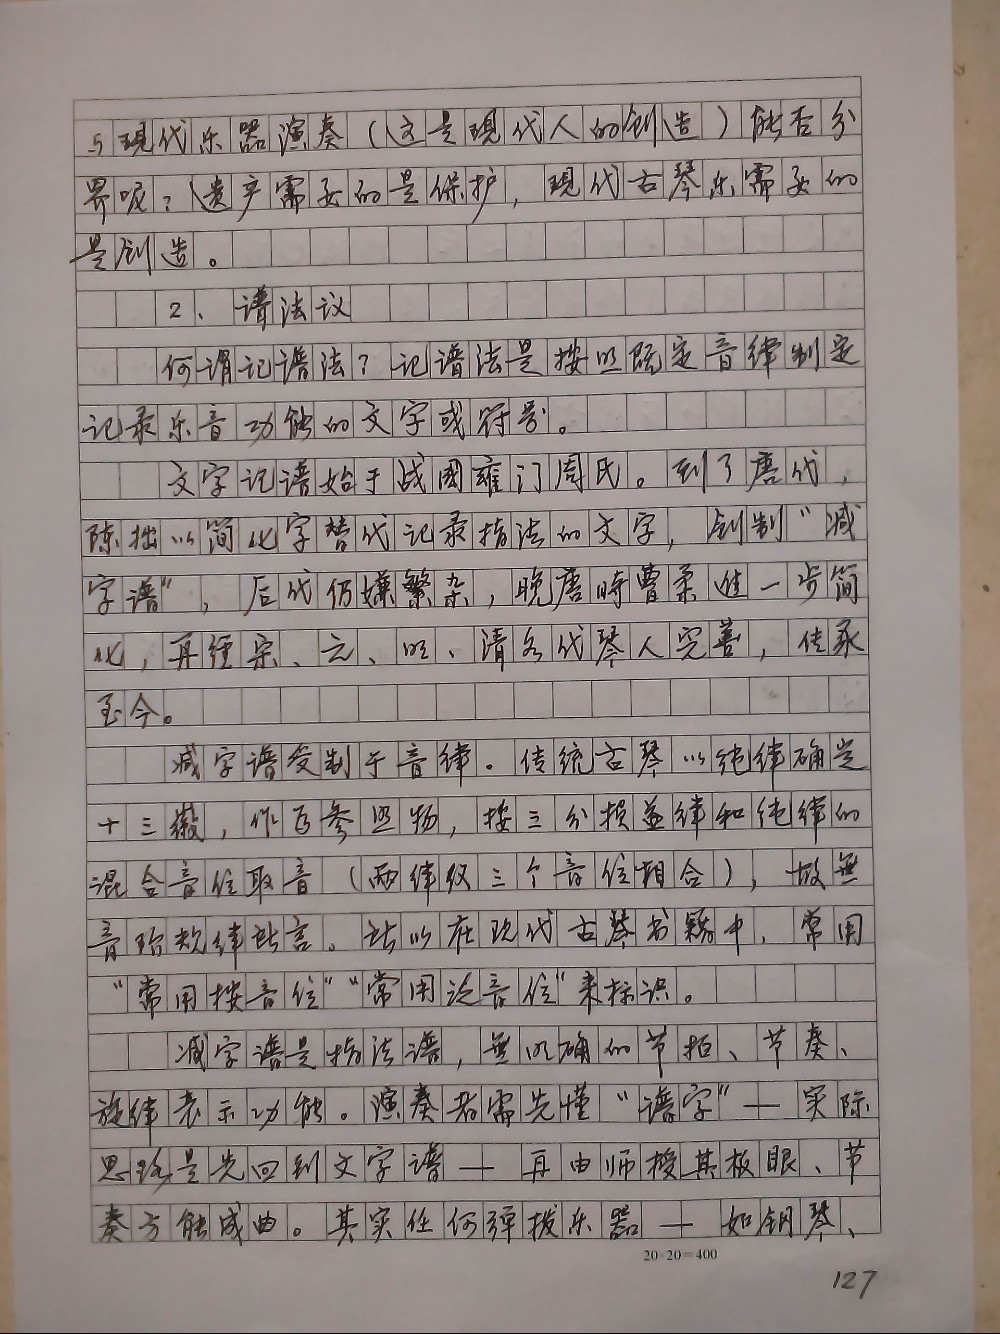 与现代乐器演奏（这是现代人的创造）能否分
界呢？遗产需要的是保护，现代古琴乐需要的
是创造。
2、谱法议
何谓记谱法？记谱法是按照既定音律制定
记录乐音功能的文字或符号。
文字记谱始于战國雍门周氏。到了唐代，
陈拙以简化字替代记录指法的文字，创制“减
字谱”，后代仍嫌繁杂，晚唐時曹柔進一步简
化，再經宋、元、明、清各代琴人完善，传承
至今。
减字谱受制于音律。传统古琴以纯律确定
十三徽，作为参照物，按三分损益律和纯律的
混合音位取音（两律仅三个音位相合），故無
音阶规律可言。所以在现代古琴书籍中，常用
“常用按音位”“常用泛音位”来标识。
减字谱是指法谱，無明确的节拍、节奏、
旋律表示功能。演奏者需先懂“谱字”—实际
思路是先回到文字谱—再由师授其板眼、节
奏方能成曲。其实任何弹拨乐器—如钢琴、
20×20=400
127